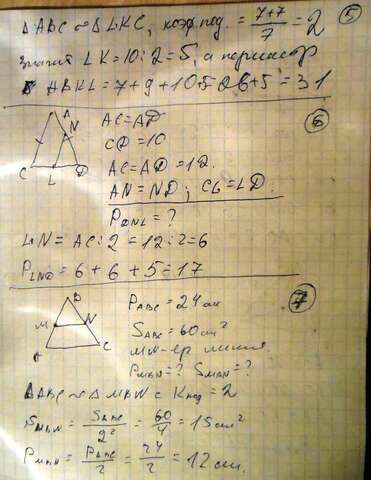 △ABC ~ △LKC, коэф. под. = (7+7)/7 = 2 (5)
Значит LK = 10:2 = 5, а периметр
ABKL = 7+9+10+5 = 31
(6)
A
N
C L D
AC = AD
CD = 10
AC = AD = 12.
AN = ND; CL = LD.
P = ?
LN = AC:2 = 12:2 = 6
P_LND = 6+6+5 = 17
(7)
B
M N
C
P_ABC = 24 см
S_ABC = 60 см²
MN - ср. линия.
P_MBN = ? S_MBN = ?
△ABC ~ △MBN с K_под = 2
S_MBN = S_ABC/2² = 60/4 = 15 см²
P_MBN = P_ABC/2 = 24/2 = 12 см.